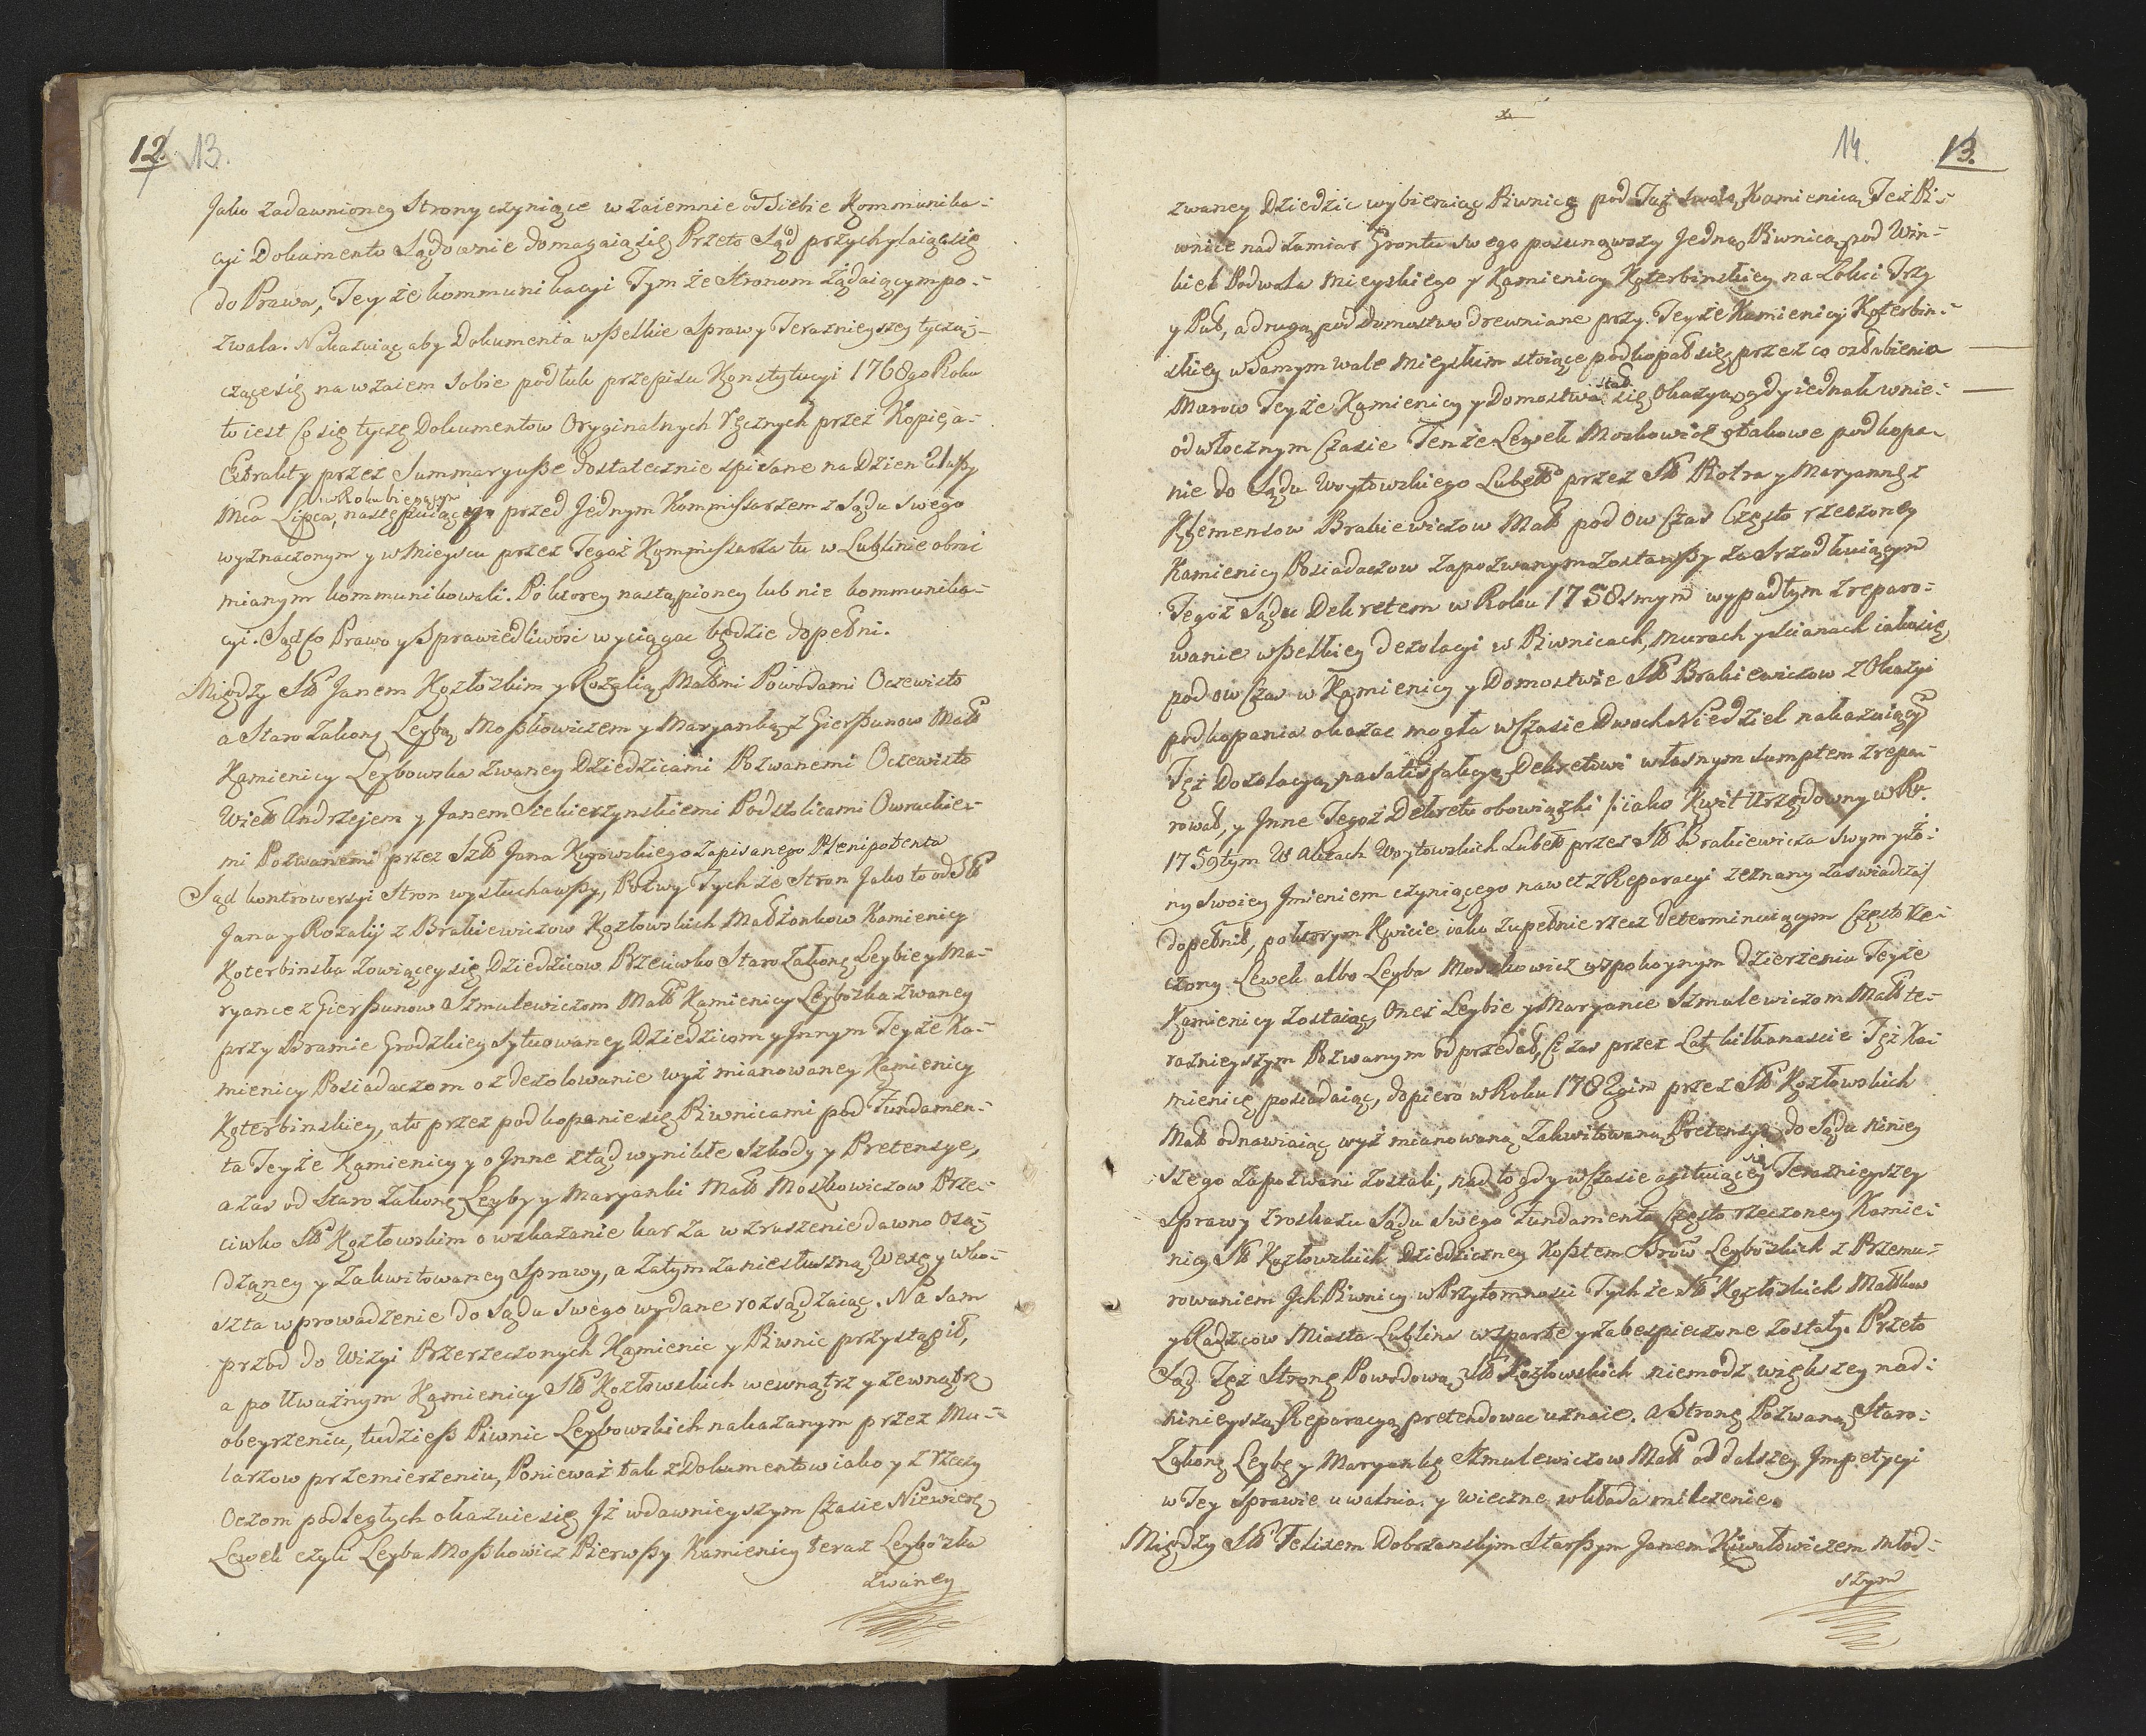 12. 13.
Jako zadawnioney Strony czyniące wzaiemnie od Siebie Kommunika-
cyi Dokumentow Sądownie domagaią się Przeto Sąd przychylaiąc się
do Prawa, Teyże kommunikacyi Tymże Stronom żądaiącym po-
zwala. Nakazuiąc aby Dokumenta wszelkie Sprawy Terazniejszey tyczą-
czące się nawzaiem sobie podług przepisu Konstytucyi 1768go Roku
to iest co się tycze Dokumentow Oryginalnych Ręcznych przez Kopie, a
Extrakty przez Summaryusze dostatecznie spisane na Dzien
Mca Lipca, w Roku bieżącym następuiącym przed Jednym Kommissarzem z Sądu Swego
wyznaczonym y w Mieyscu przez Tegoż Kommissarza tu w Lublinie obrać
mianym kommunikowali. Po ktorey nastąpioney lub nie kommunika-
cyi. Sąd co Prawo y Sprawiedliwość wyciągać będzie dopełni.
Między Sł Janem Kozłowskim y Rozalią Małżmi Powodami Oczewisto
a Staro Zakonną Leybą Moszkowiczem y Maryanką z Gierszunow Małż
Kamienicy Leybowska zwaney Dziedzicami Pozwanemi Oczewisto
Wiel Andrzejem y Janem Siekierzynskiemi Podstolicami Owruckie-
mi Pozwanemi przez Szl Jana Kurowskiego zapisanego Plenipotenta
Sąd kontrowersyi Stron wysłuchawszy, Pozwy Tychże Stron Jako to od Sł
Jana y Rozalij z Brakiewiczow Kozłowskich Małżonkow Kamienicy
Koterbinska zowiącey się Dziedzicow Przeciwko Staro Zakonę Leybie y Ma-
ryance z Gierszunow Szmulewiczom Małż Kamienicy Leybozka zwaney
przy Bramie Grodzkiey Sytuowaney Dziedzicom y Innym Teyże Ka-
mienicy Posiadaczom o zdezolowanie wyż mianowaney Kamienicy
Koterbinskiey, a to przez podkopanie się Piwnicami pod Fundamen-
ta Teyże Kamienicy y o Inne ztąd wynikłe Szkody y Pretensye,
a zaś od Staro Zakonę Leyby y Maryanki Małż Moszkowiczow Prze-
ciwko Sł Kozłowskim o wskazanie kar za wzruszenie dawno Osą-
dzoney y Zakwitowaney Sprawy, a zatym za niesłuszną Wexę y wko-
szta wprowadzenie do Sądu Swego wydane rozsądzaiąc. Na sam
przod do Wizyi Przerzeczonych Kamienic y Piwnic przystąpił,
a po Uważnym Kamienicy Sł Kozłowskich wewnątrz y zewnątrz
obeyrzeniu, tudziesz Piwnic Leybowskich nakazanym przez Mu-
larzow przemierzeniu, Ponieważ tak z Dokumentow iako y z rzeczy
Oczom podległych okazuie się Jż w dawnieyszym Czasie Niewierny
Lewek czyli Leyba Moszkowicz Pierwszy Kamienicy teraz Leybozka
zwaney
14. 13.
zwaney Dziedzic wybieraiąc Piwnicę pod Taż swoią Kamienicą Też Pi-
wnice nad zamiar Grontu swego posunąwszy Jedną Piwnicą pod Win-
kiel Podwala Mieyskiego y Kamienicy Koterbinskiey na Łokci Trzy
y Puł, a drugą pod Domostwo drewniane przy Teyże Kamienicy Koterbin-
skiey w Samym wale Mieyskim stoiące podkopał się, przez co osłabienia
Murow Teyże Kamienicy y Domostwa stała się Okazya, gdy iednak w nie-
odwłocznym Czasie Tenże Lewek Moskowicz o takowe podkopa-
nie do Sądu Woytowskiego Lubel przez Sł Piotra y Maryannę z
Klemensow Brakiewiczow Małż pod ow Czas Często rzeczoney
Kamienicy Posiadaczow zapozwanym zostawszy za
Tegoż Sądu Dekretem w Roku 1758smym wypadłym zreparo-
wanie wszelkiey dezolacyi w Piwnicach, Murach y Scianach iaka się
pod ow Czas w Kamienicy y Domostwie Sł Brakiewiczow z Okazyi
podkopania okazać mogła w Czasie Dwoch Niedziel nakazuiącym
Też Dezolacyą na Satisfakcyą Dekretowi własnym sumptem zrepa-
rował, y Inne Tegoż Dekretu obowiązki /: iako Kwit Urzędowny w Ro.
1759tym W Aktach Woytowskich Lubel przez Sł Brakiewicza Swym y Żo-
ny Swoiey Jmieniem czyniącego nawet z Reparacyi zeznany zaswiadcza/
dopełnił, po ktorym Kwicie iako zupełnie rzecz determinuiącym Często rze-
czony Lewek albo Leyba Moszkowicz w spokoynym Dzierżeniu Teyże
Kamienicy zostaiąc, Oneż Leybie y Maryance Szmulewiczom Małż te-
raznieyszym Pozwanym odprzedał, Ci zaś przez Lat kilkanascie Też Ka-
mienicę posiadaiąc, dopiero w Roku 1782gim przez Sł Kozłowskich
Małż odnawiaiąc wyż mianowaną Zakwitowaną Pretensyą do Sądu niniey
szego zapozwani zostali, nad to gdy w Czasie agituiącey się Teraznieyszey
Sprawy z rozkazu Sądu Swego Fundamenta Często rzeczoney Kamie-
nicy Sł Kozłowskich Dziedziczney kosztem Stron Leybozkich z Przemu-
rowaniem Jch Piwnicy w Przytomnosci Tychże Sł Kozłowskich Małżkow
y Radzcow Miasta Lublina wsparte y zabespieczone zostały. Przeto
Sąd Też Stronę Powodową Sł Kozłowskich niemódz większey nad
ninieyszą Reparacyą pretendować uznaie. A Stronę Pozwaną Staro-
Zakonę Leybę y Maryankę Szmulewiczow Małż od dalszey Impetycyi
w Tey Sprawie uwalnia y wieczne wkłada milczenie.
Między Sł Felixem Dobrzanskim Starszym Janem Kiwałowiczem Młod-
szym